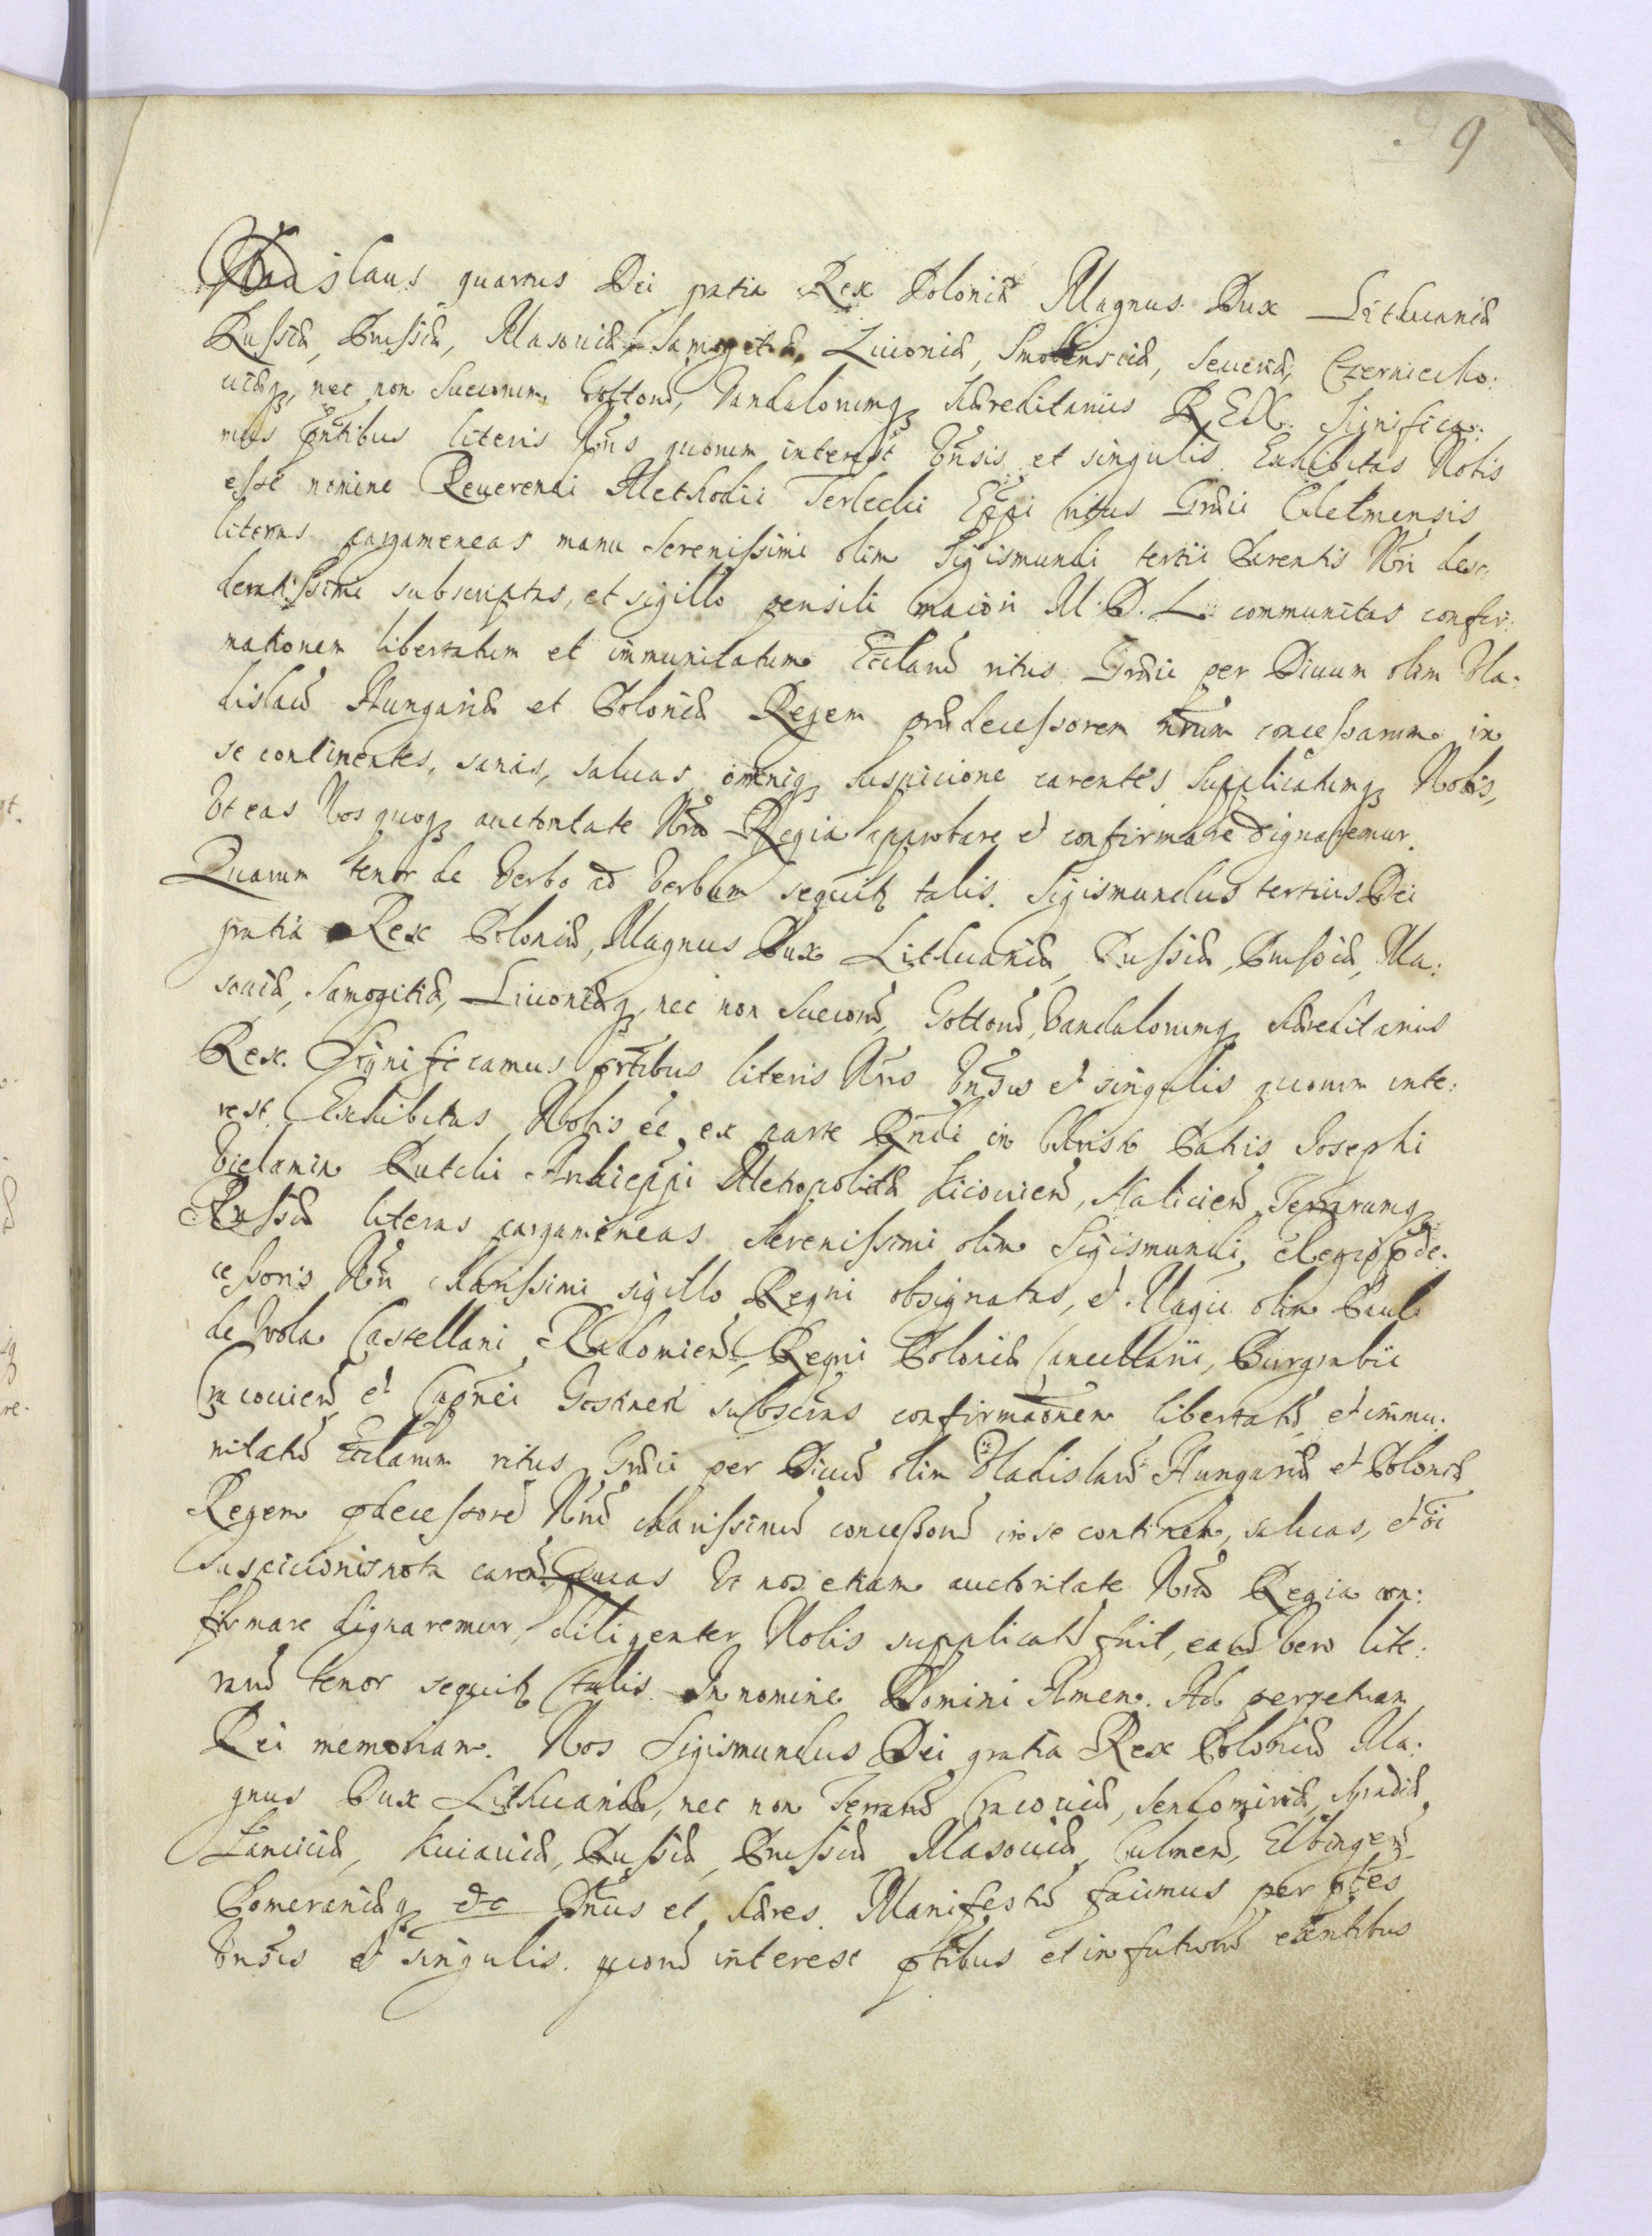 9
Vladislaus quartus Dei gratia Rex Poloniæ Magnus Dux Lithuaniæ
Russiæ, Prussiæ, Masouiæ, Samogitiæ, Liuoniæ, Smolensciæ, Seueriæ, Czerniecho:
uiæq₃, nec non Suecorum Gottorū, Vandalorumq₃ Hæreditarius REX. Significa:
mus pñtibus literis Nr̃is quorum interest Vñsis et singulis. Exhibitas Nobis
esse nomine Reuerendi Methodii Terlecki Ep̃pi ritus Græci Chelmensis
literas pargameneas manu Serenissimi olim Sigismundi tertii Parentis Nr̃i desi
deratissimi subscriptas, et sigillo pensili maiori M. D. L. communitas confir:
mationem libertatum et immunitatum Eccl̃arū ritus Græci per Diuum olim Vla:
dislaū Hungariæ et Poloniæ Regem prædecessorem nr̃um concessarum in
se continentes, sanas, saluas omniq₃ suspicione carentes supplicatumq₃ Nobis,
Vt eas Nos quoq₃ auctoritate Nr̃a Regia approbare et confirmare dignaremur.
Quarum tenor de Verbo ad Verbum sequitr talis. Sigismundus tertius Dei
gratia Rex Poloniæ, Magnus Dux Lithuaniæ, Russiæ, Prussiæ, Ma:
souiæ, Samogitiæ, Liuoniæq₃, nec non Suecorū, Gottorū, Vandalorumq₃ Hæreditarius
Rex. Significamus pñtibus literis Nr̃is Vñsis et singulis quorum inte:
rest. Exhibitas Nobis ee̅ ex parte Rñdi in Christo Patris Josephi
Vielamin Rutcki Archiep̃pi Metropolitæ Kiiouien̄, Halicien̄, Terrarumq₃
Russiæ literas pargameneas Serenissimi olim Sigismundi, Regis p̄de:
cessoris Nr̃i charissimi sigillo Regni obsignatas, et Magn̄ci olim Pauli
de Wola Castellani Radomien̄, Regni Poloniæ Cancellarii, Burgrabii
Cracouien̄ et Capñei Gostinen̄ subscr̄as confirmaõnem libertatū et immu:
nitatū Eccl̃arum ritus Græci per Diuū olim Vladislaū Hungariæ et Poloniæ
Regem p̄decessorē Nr̃ū charissimū concessarū in se continen̄, saluas, et oĩ
suspicionis nota caren̄. Quas Vt nos etiam auctoritate Nr̃a Regia con:
firmare dignaremur, diligenter Nobis supplicatū fuit, earū Vero lite:
rarū tenor sequitr talis. In nomine Domini Amen. Ad perpetuam
Rei memoriam. Nos Sigismundus Dei gratia Rex Poloniæ Ma:
gnus Dux Lithuaniæ, nec non Terrarū Cracouiæ, Sendomiriæ, Siradiæ
Lanciciæ, Kuiauiæ, Russiæ, Prussiæ Masouiæ, Culmen̄, Elbingen̄
Pomeraniæq₃ etc Dñus et Hæres. Manifestū facimus per p̄tes
Vñsis et singulis. quorū interest p̄tibus et in futurū existentibus